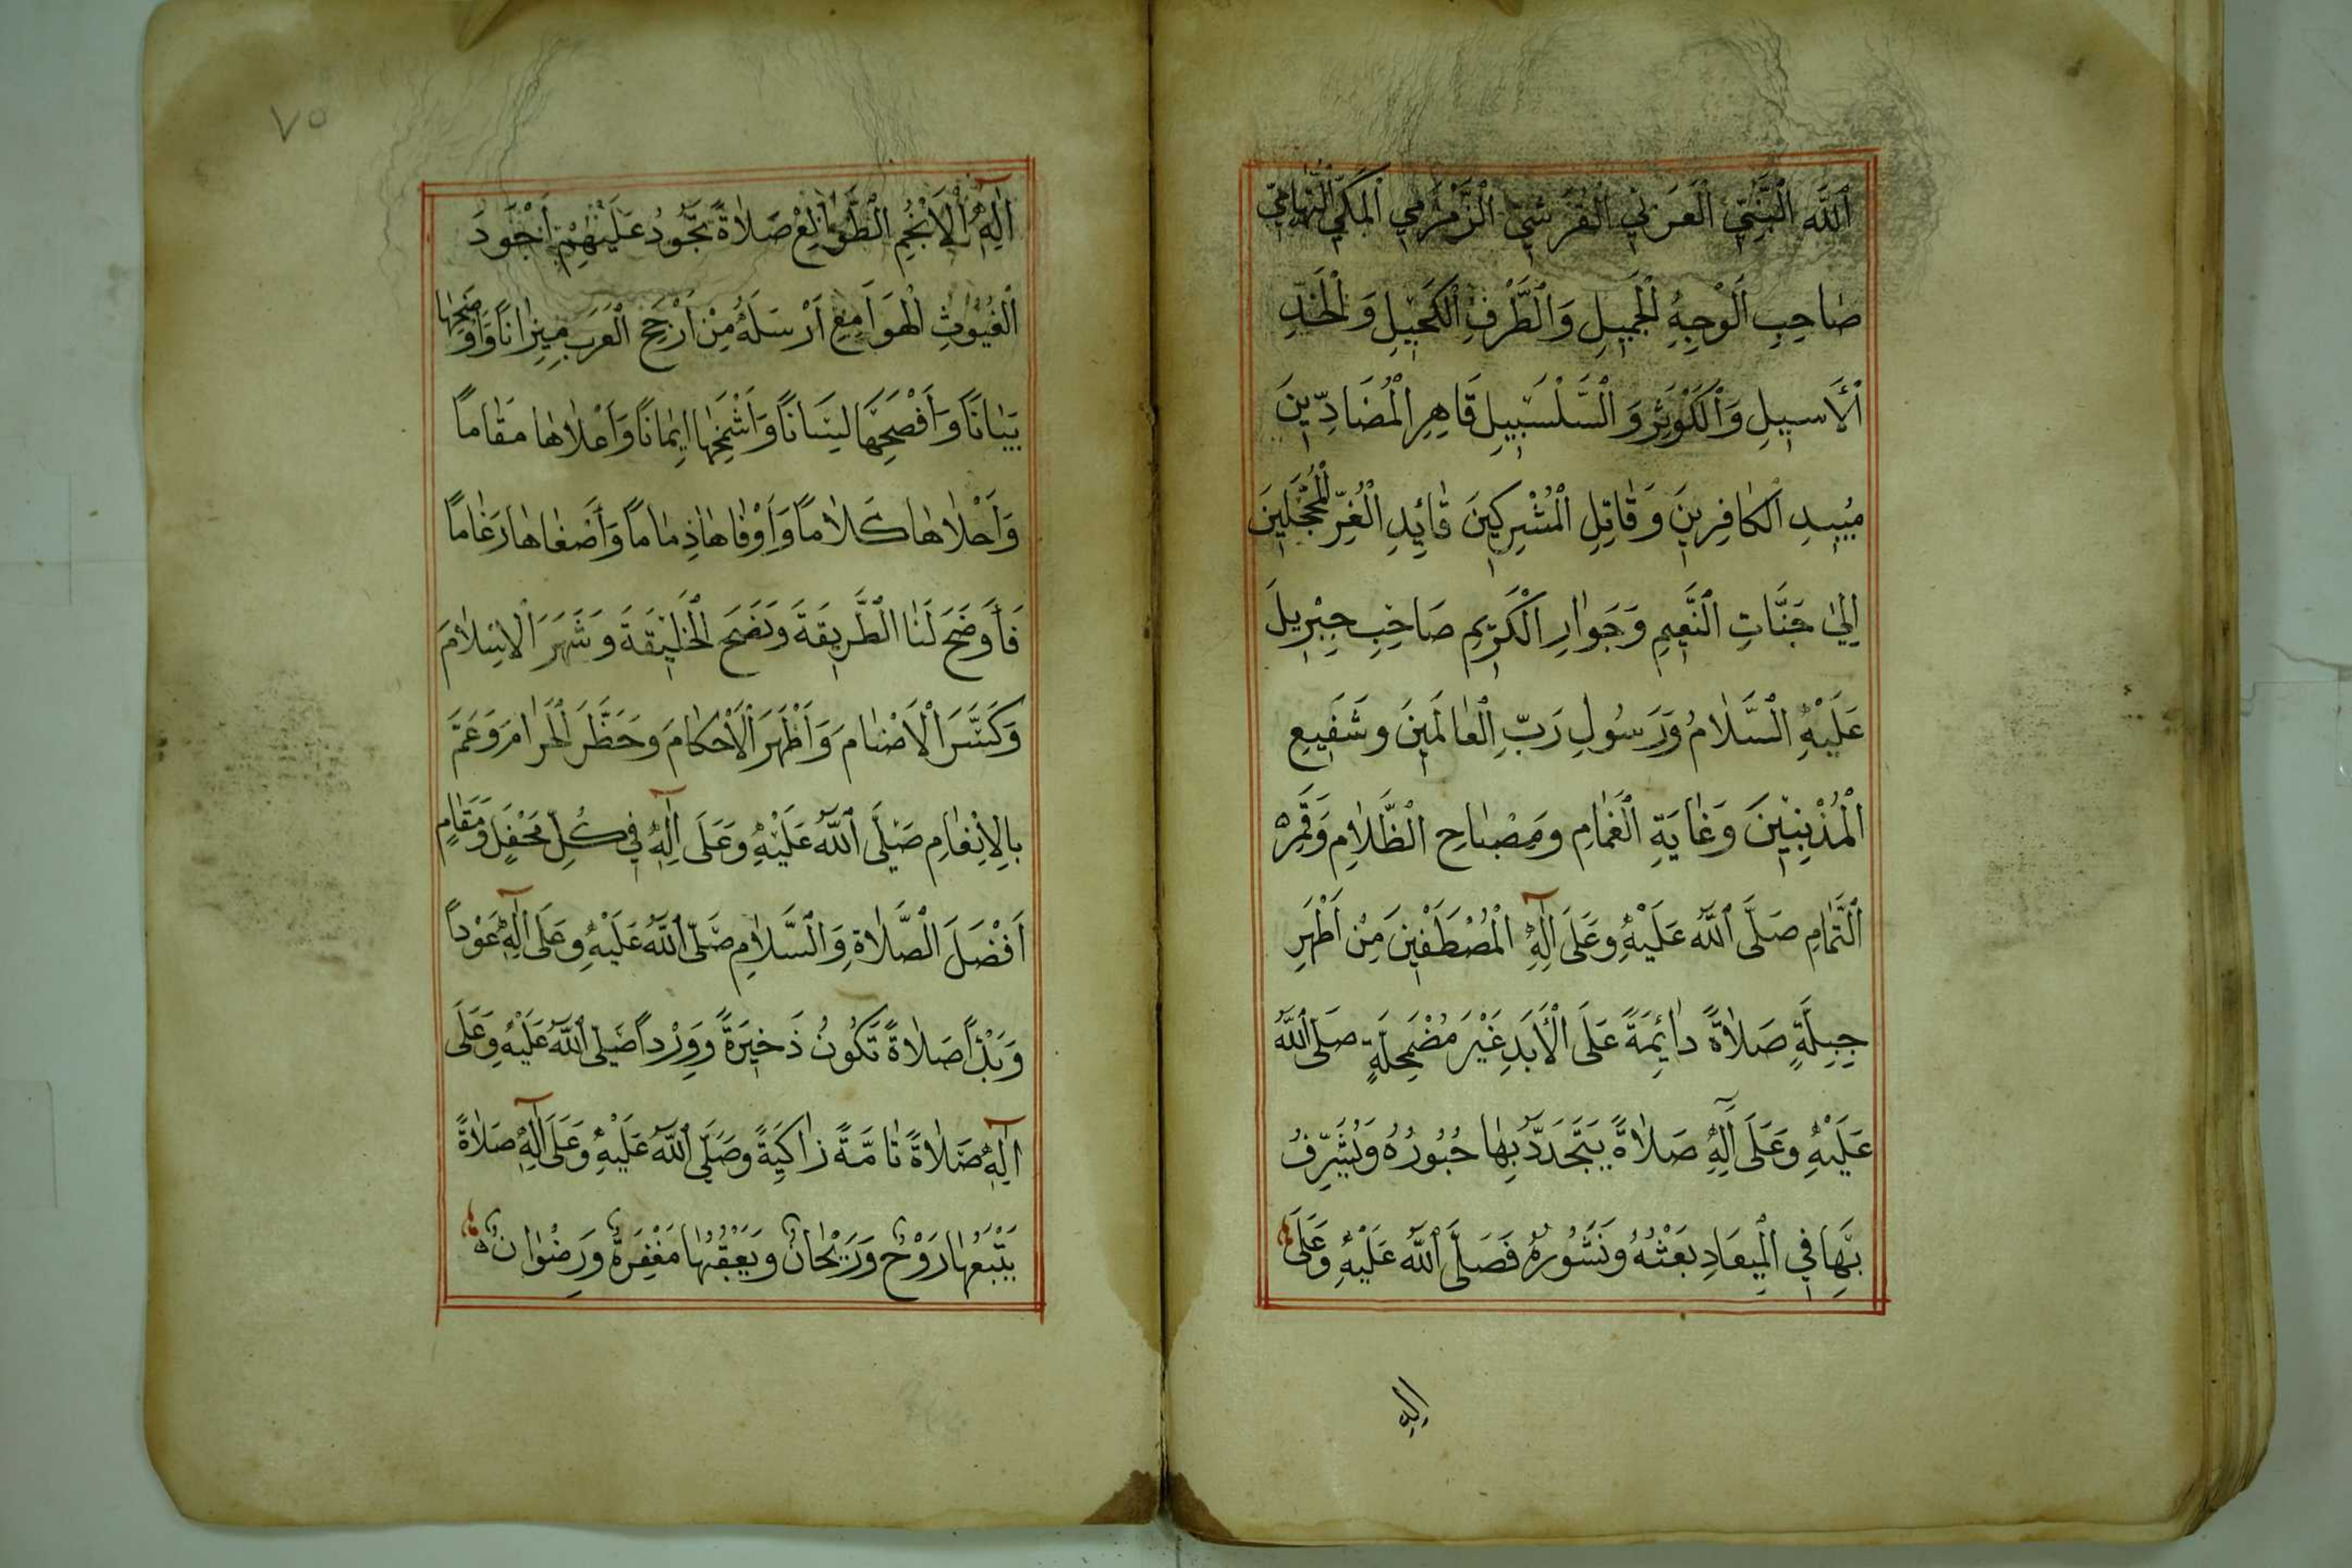 ٱللَّهِ ٱلنَّبِيِّ ٱلْعَرَبِيِّ ٱلْقُرَشِيِّ ٱلزَّمْزَمِيِّ ٱلْمَكِّيِّ ٱلتِّهَامِيِّ
صَاحِبِ ٱلْوَجْهِ ٱلْجَمِيلِ وَٱلطَّرْفِ ٱلْكَحِيلِ وَٱلْخَدِّ
ٱلْأَسِيلِ وَٱلْكَوْثَرِ وَٱلسَّلْسَبِيلِ قَاهِرِ ٱلْمُضَادِّينَ
مُبِيدِ ٱلْكَافِرِينَ وَقَاتِلِ ٱلْمُشْرِكِينَ قَائِدِ ٱلْغُرِّ ٱلْمُحَجَّلِينَ
إِلَىٰ جَنَّاتِ ٱلنَّعِيمِ وَجَوَارِ ٱلْكَرِيمِ صَاحِبِ جِبْرِيلَ
عَلَيْهِ ٱلسَّلَامُ وَرَسُولِ رَبِّ ٱلْعَالَمِينَ وَشَفِيعِ
ٱلْمُذْنِبِينَ وَغَايَةِ ٱلْغَمَامِ وَمِصْبَاحِ ٱلظَّلَامِ وَقَمَرِ
ٱلتَّمَامِ صَلَّى ٱللَّهُ عَلَيْهِ وَعَلَى آلِهِ ٱلْمُصْطَفَيْنَ مِنْ أَطْهَرِ
جِبِلَّةٍ صَلَاةً دَائِمَةً عَلَى ٱلْأَبَدِ غَيْرَ مُضْمَحِلَّةٍ صَلَّى ٱللَّهُ
عَلَيْهِ وَعَلَى آلِهِ صَلَاةً يَتَجَدَّدُ بِهَا حُبُورُهُ وَيُشَرَّفُ
بِهَا فِي ٱلْمِيعَادِ بَعْثُهُ وَنُشُورُهُ فَصَلَّى ٱللَّهُ عَلَيْهِ وَعَلَى
اله
٧٥
آلِهِ ٱلْأَنْجُمِ ٱلطَّوَالِعِ صَلَاةً تَجُودُ عَلَيْهِمْ أَجْوَدَ
ٱلْغُيُوثِ ٱلْهَوَامِعِ أَرْسَلَهُ مِنْ أَرْجَحِ ٱلْعَرَبِ مِيزَانًا وَأَوْضَحِهَا
بَيَانًا وَأَفْصَحِهَا لِسَانًا وَأَشْمَخِهَا إِيمَانًا وَأَعْلَاهَا مَقَامًا
وَأَحْلَاهَا كَلَامًا وَأَوْفَاهَا ذِمَامًا وَأَصْفَاهَا رَغَامًا
فَأَوْضَحَ لَنَا ٱلطَّرِيقَةَ وَنَصَحَ ٱلْخَلِيقَةَ وَشَهَرَ ٱلْإِسْلَامَ
وَكَسَّرَ ٱلْأَصْنَامَ وَأَظْهَرَ ٱلْأَحْكَامَ وَحَظَّرَ ٱلْحَرَامَ وَعَمَّ
بِالْإِنْعَامِ صَلَّى ٱللَّهُ عَلَيْهِ وَعَلَى آلِهِ فِي كُلِّ مَحْفِلٍ وَمَقَامٍ
أَفْضَلَ ٱلصَّلَاةِ وَٱلسَّلَامِ صَلَّى ٱللَّهُ عَلَيْهِ وَعَلَى آلِهِ عَوْدًا
وَبَدْأً صَلَاةً تَكُونُ ذَخِيرَةً وَوِرْدًا صَلَّى ٱللَّهُ عَلَيْهِ وَعَلَى
آلِهِ صَلَاةً تَامَّةً زَاكِيَةً وَصَلَّى ٱللَّهُ عَلَيْهِ وَعَلَى آلِهِ صَلَاةً
يَتْبَعُهَا رَوْحٌ وَرَيْحَانٌ وَيَعْقُبُهَا مَغْفِرَةٌ وَرِضْوَانٌ